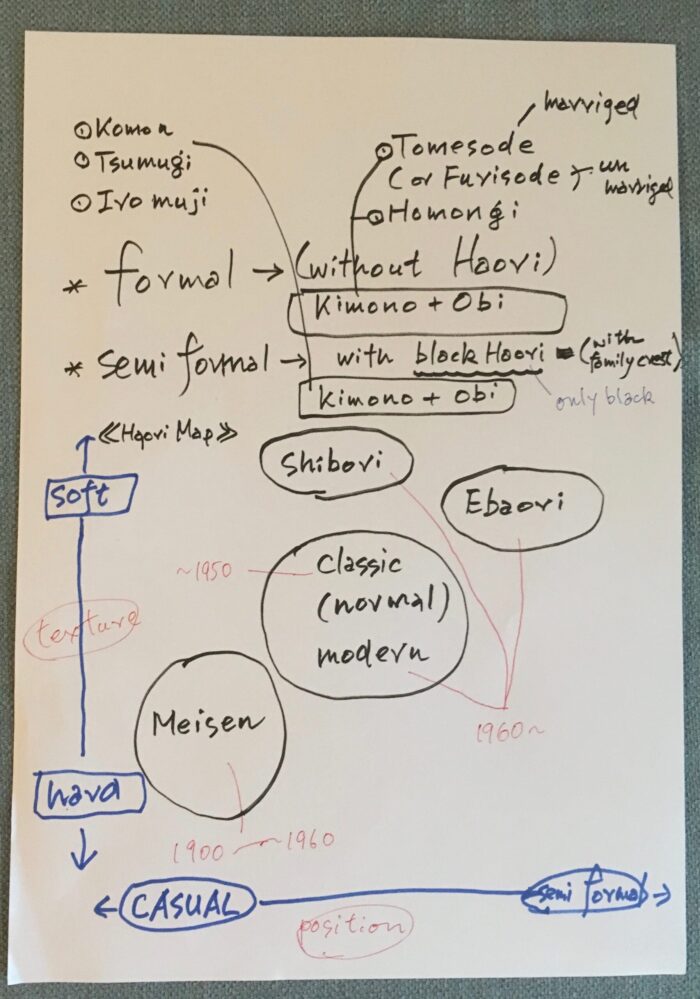 Komon
Tsumugi
Iro muji
marriged
Tomesode
(or Furisode
un
marriged
Homongi
* formal → (without Haori)
Kimono + Obi
* semi formal → with black Haori (with
family crest)
only black
Kimono + Obi
≪Haori Map≫
soft
Shibori
Ebaori
~1950
classic
(normal)
modern
texture
Meisen
1960~
hard
1900 ~ 1960
CASUAL
semi formal
position